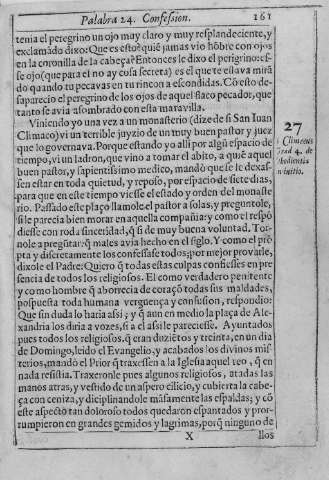 Palabra 24. Confession. 161
tenia el peregrino un ojo muy claro y muy resplandeciente, y
exclamádo dixo: Que es esto? quié jamas vio hõbre con ojos
en la coronilla de la cabeça? Entonces le dixo el perigrino: es-
se ojo (que para el no ay cosa secreta) es el que te estava mirã
do quando tu pecavas en tu rincon a escondidas. Cõ esto de-
saparecio el peregrino de los ojos de aquel flaco pecador, que
tanto se avia assombrado con esta maravilla.
Viniendo yo una vez a un monasterio (dize de si San Iuan
Climaco) vi un terrible juyzio de un muy buen pastor y juez
que lo governava. Porque estando yo alli por algũ espacio de
tiempo, vi un ladron, que vino a tomar el abito, a quiẽ aquel
buen pastor, y sapientissimo medico, mandò que se le dexas-
sen estar en toda quietud, y reposo, por espacio de siete dias,
para que en este tiempo viesse el estado y orden del monaste
rio. Passado este plaço llamole el pastor a solas, y preguntole,
si le parecia bien morar en aquella compañia: y como el respõ
diesse con toda sinceridad, q̃ si de muy buena voluntad. Tor-
nole a pregũtar: q̃ males avia hecho en el siglo. Y como el prõ-
pta y discretamente los confessasse todos; por mejor provarle,
dixole el Padre: Quiero q̃ todas estas culpas confiesses en pre
sencia de todos los religiosos. El como verdadero penitente
y como hombre q̃ aborrecia de coraçõ todas sus maldades,
pospuesta toda humana verguença y confusion, respondio:
Que sin duda lo haria assi; y q̃ aun en medio la plaça de Ale-
xandria los diria a vozes, si a el assi le pareciesse. Ayuntados
pues todos los religiosos, q̃ eran duziẽtos y treinta, en un dia
de Domingo, leido el Evangelio, y acabados los divinos mis-
terios, mandò el Prior q̃ traxessen a la Iglesia aquel reo, q̃ en
nada resistia. Traxeronle pues algunos religiosos, atadas las
manos atras, y vestido de un aspero cilicio, y cubierta la cabe-
ça con ceniza, y diciplinandole mãsamente las espaldas; y cõ
este aspectò tan doloroso todos quedaron espantados y pror-
rumpieron en grandes gemidos y lagrimas, porq̃ ninguno de
X llos
27
Climacus
grad 4. de
obedientia
initio.